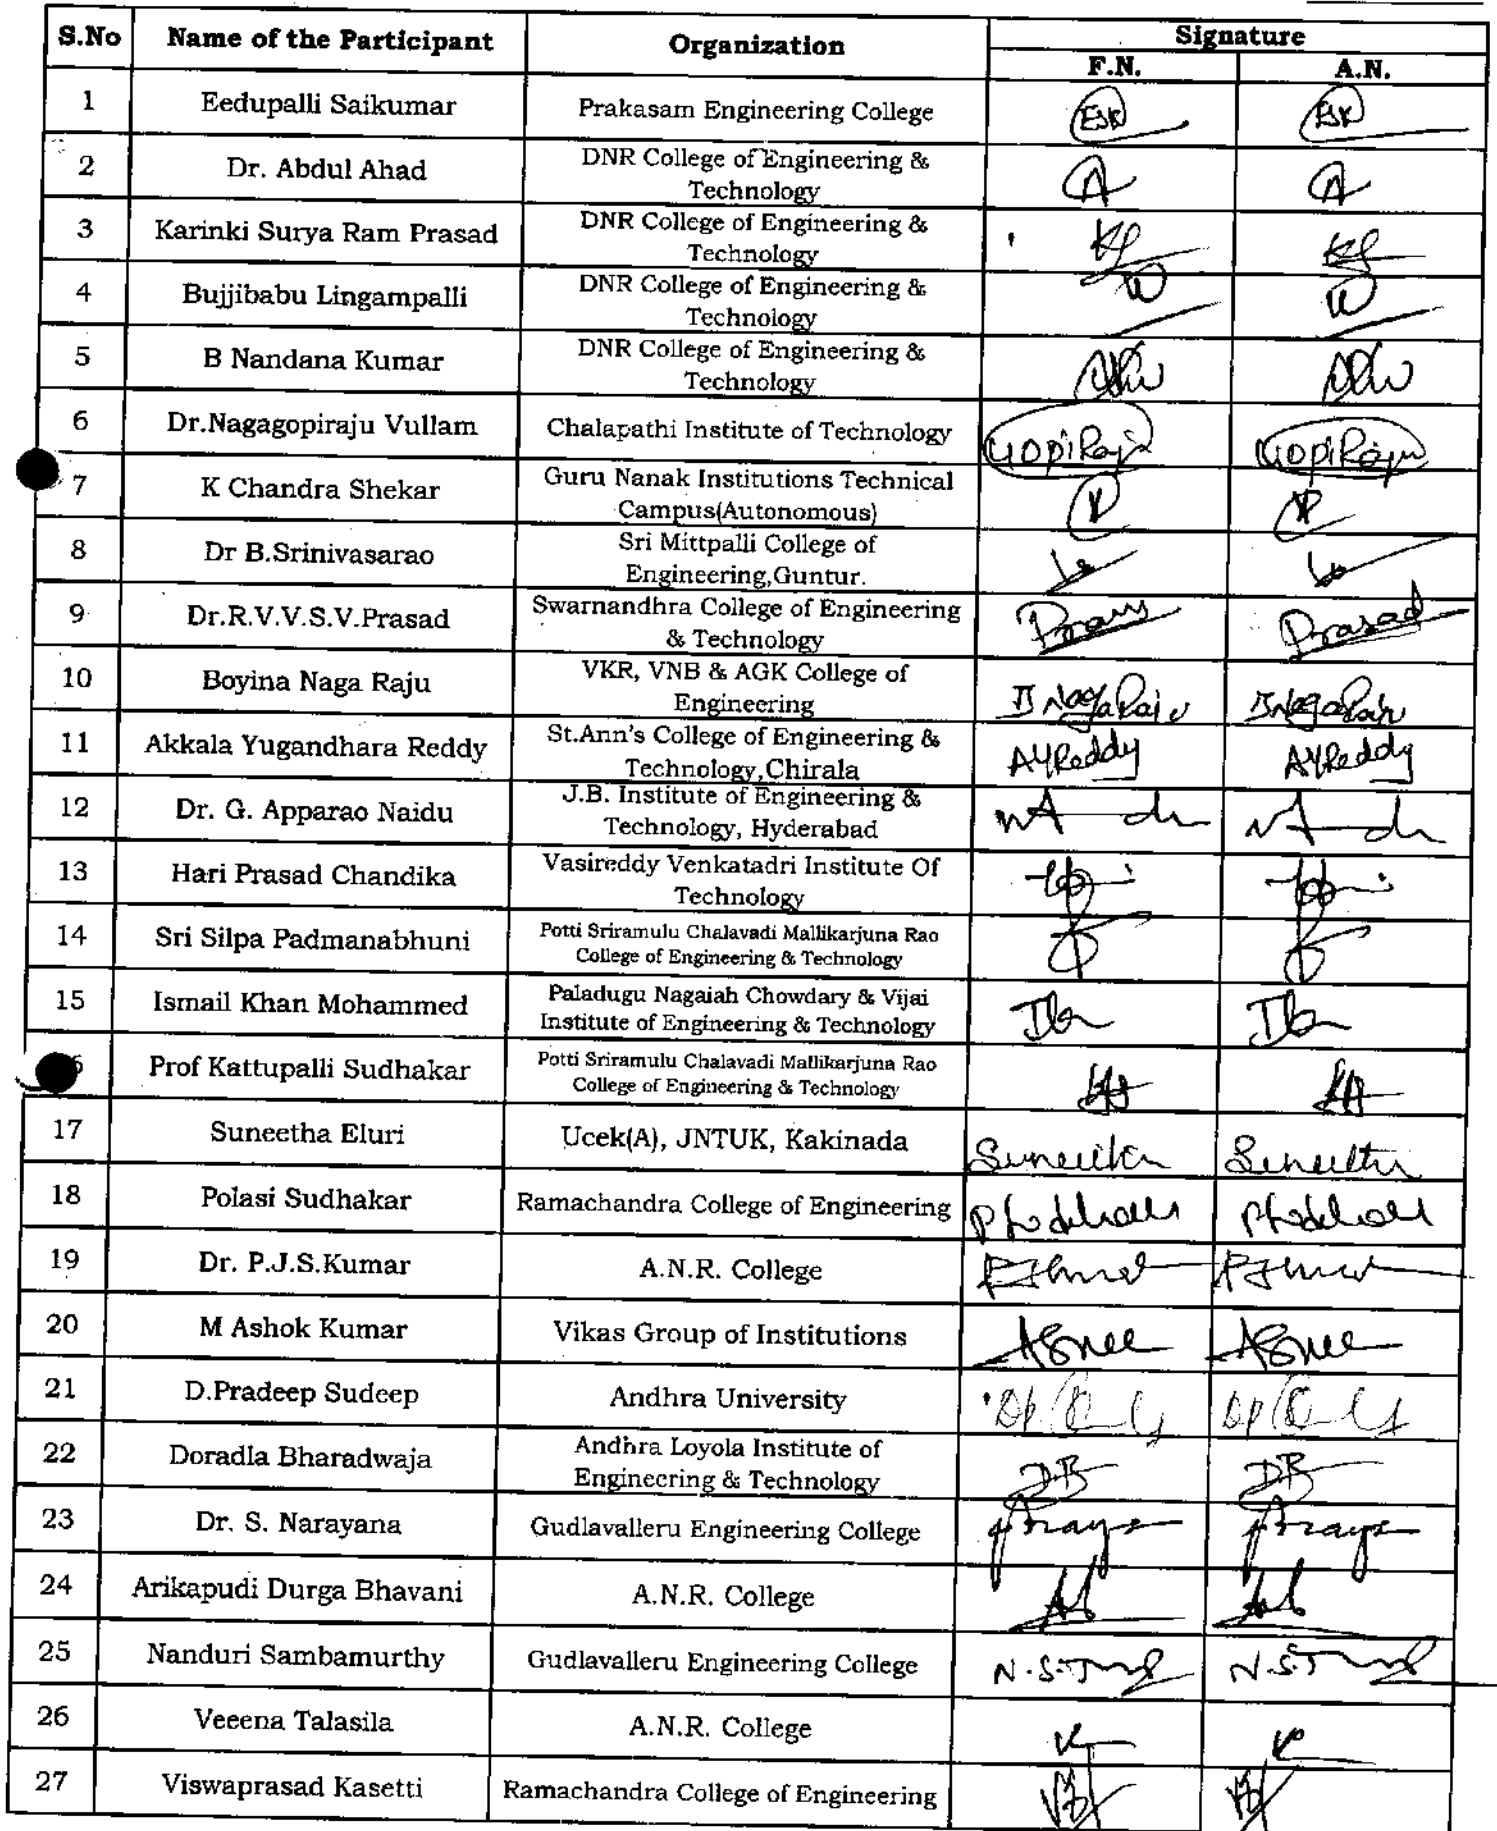 S.No Name of the Participant Organization Signature
F.N. A.N.
1 Eedupalli Saikumar Prakasam Engineering College ESK ESK
2 Dr. Abdul Ahad DNR College of Engineering &
Technology
3 Karinki Surya Ram Prasad DNR College of Engineering &
Technology
4 Bujjibabu Lingampalli DNR College of Engineering &
Technology
5 B Nandana Kumar DNR College of Engineering &
Technology
6 Dr.Nagagopiraju Vullam Chalapathi Institute of Technology GopiRaju GopiRaju
7 K Chandra Shekar Guru Nanak Institutions Technical
Campus(Autonomous)
8 Dr B.Srinivasarao Sri Mittpalli College of
Engineering,Guntur.
9 Dr.R.V.V.S.V.Prasad Swarnandhra College of Engineering
& Technology Prasad
10 Boyina Naga Raju VKR, VNB & AGK College of
Engineering B NagaRaju BNagaRaju
11 Akkala Yugandhara Reddy St.Ann's College of Engineering &
Technology,Chirala AYReddy AYReddy
12 Dr. G. Apparao Naidu J.B. Institute of Engineering &
Technology, Hyderabad
13 Hari Prasad Chandika Vasireddy Venkatadri Institute Of
Technology
14 Sri Silpa Padmanabhuni Potti Sriramulu Chalavadi Mallikarjuna Rao
College of Engineering & Technology
15 Ismail Khan Mohammed Paladugu Nagaiah Chowdary & Vijai
Institute of Engineering & Technology
Prof Kattupalli Sudhakar Potti Sriramulu Chalavadi Mallikarjuna Rao
College of Engineering & Technology
17 Suneetha Eluri Ucek(A), JNTUK, Kakinada Suneetha Suneetha
18 Polasi Sudhakar Ramachandra College of Engineering
19 Dr. P.J.S.Kumar A.N.R. College
20 M Ashok Kumar Vikas Group of Institutions
21 D.Pradeep Sudeep Andhra University
22 Doradla Bharadwaja Andhra Loyola Institute of
Engineering & Technology DB DB
23 Dr. S. Narayana Gudlavalleru Engineering College
24 Arikapudi Durga Bhavani A.N.R. College
25 Nanduri Sambamurthy Gudlavalleru Engineering College
26 Veeena Talasila A.N.R. College
27 Viswaprasad Kasetti Ramachandra College of Engineering